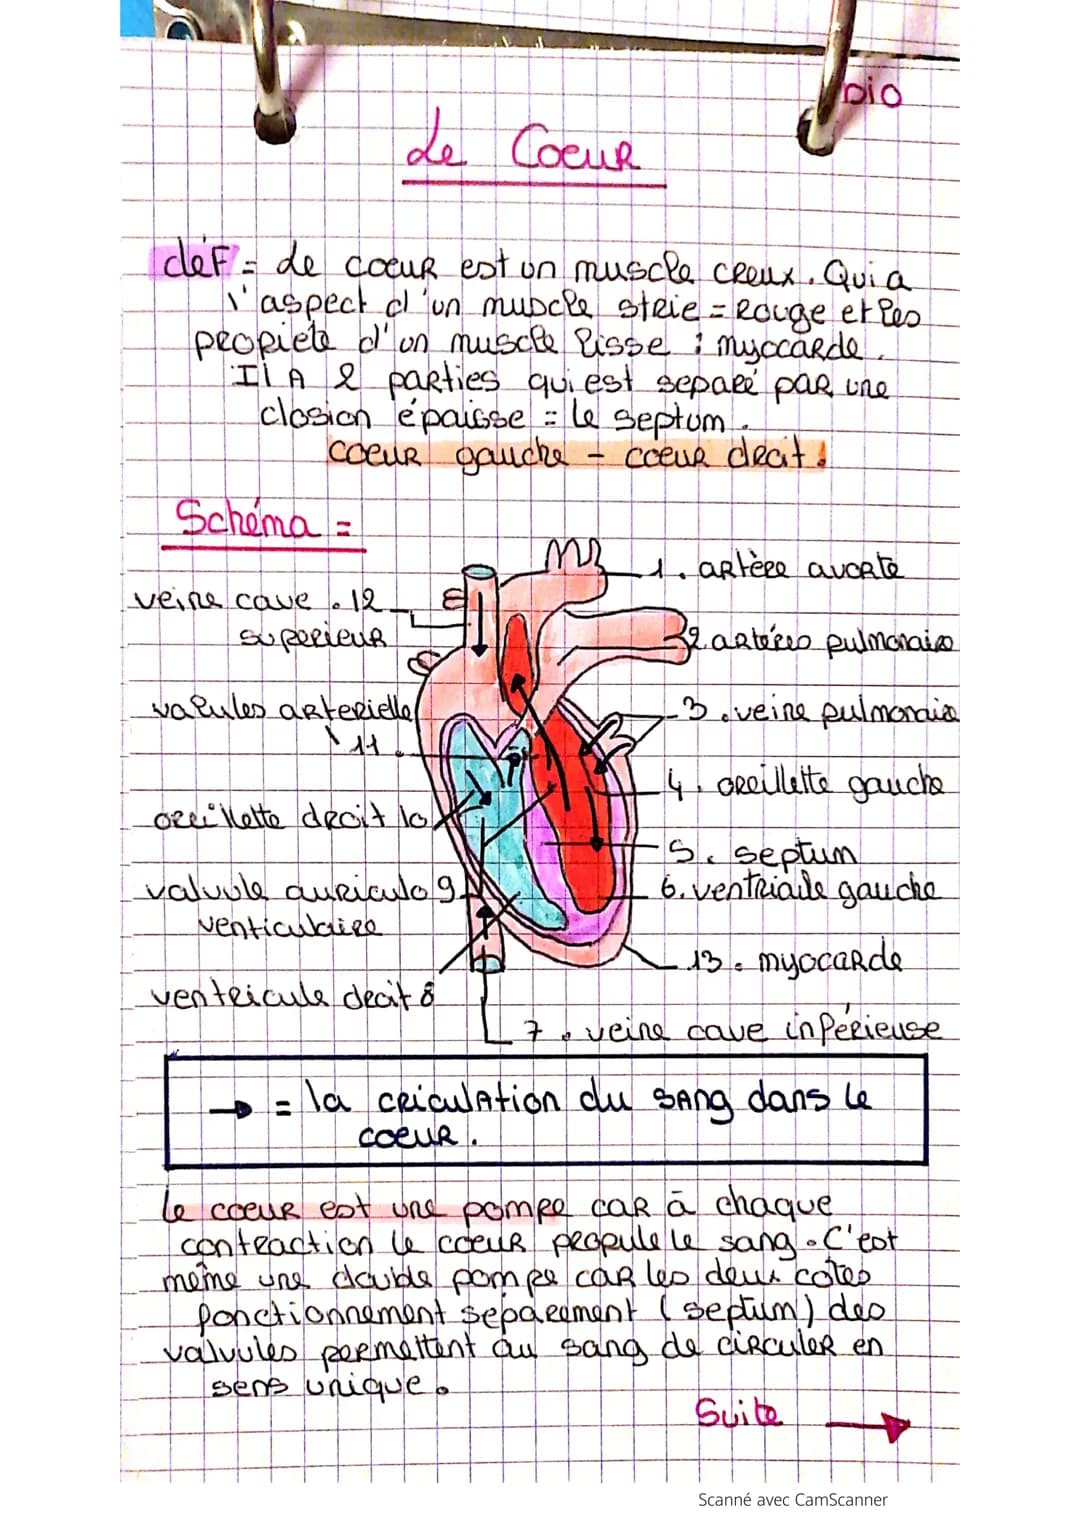 bio
Le Coeur
déf = Le coeur est un muscle creux. Qui a
l'aspect d'un muscle strie = Rouge et les
propiete d'un muscle lisse : myocarde.
Il A 2 parties qui est separé par une
closion épaisse = le septum.
coeur gauche - coeur droit.
Schéma =
1. artère avorte
veine cave . 12
superieur
2. artères pulmonaire
valvules arterielle
11.
3. veine pulmonaire
4. oreillette gauche
oreillette droit 10
5. septum
valvule auriculo 9
venticulaire
6. ventricule gauche
13. myocarde
ventricule droit 8
7. veine cave inférieuse
→ = la criculation du sang dans le
coeur.
Le coeur est une pompe car à chaque
contraction le coeur propule le sang. C'est
même une double pompe car les deux cotes
fonctionnement séparement (septum) des
valvules permettent au sang de circuler en
sens unique.
Suite →
Scanné avec CamScanner